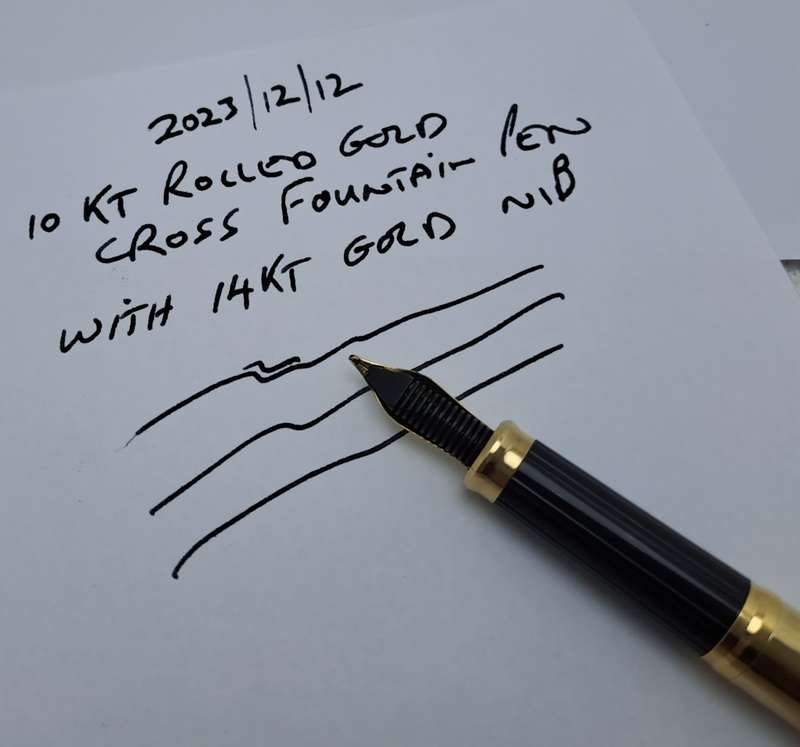 2023/12/12
10 KT ROLLED GOLD
CROSS FOUNTAIN PEN
WITH 14KT GOLD NIB